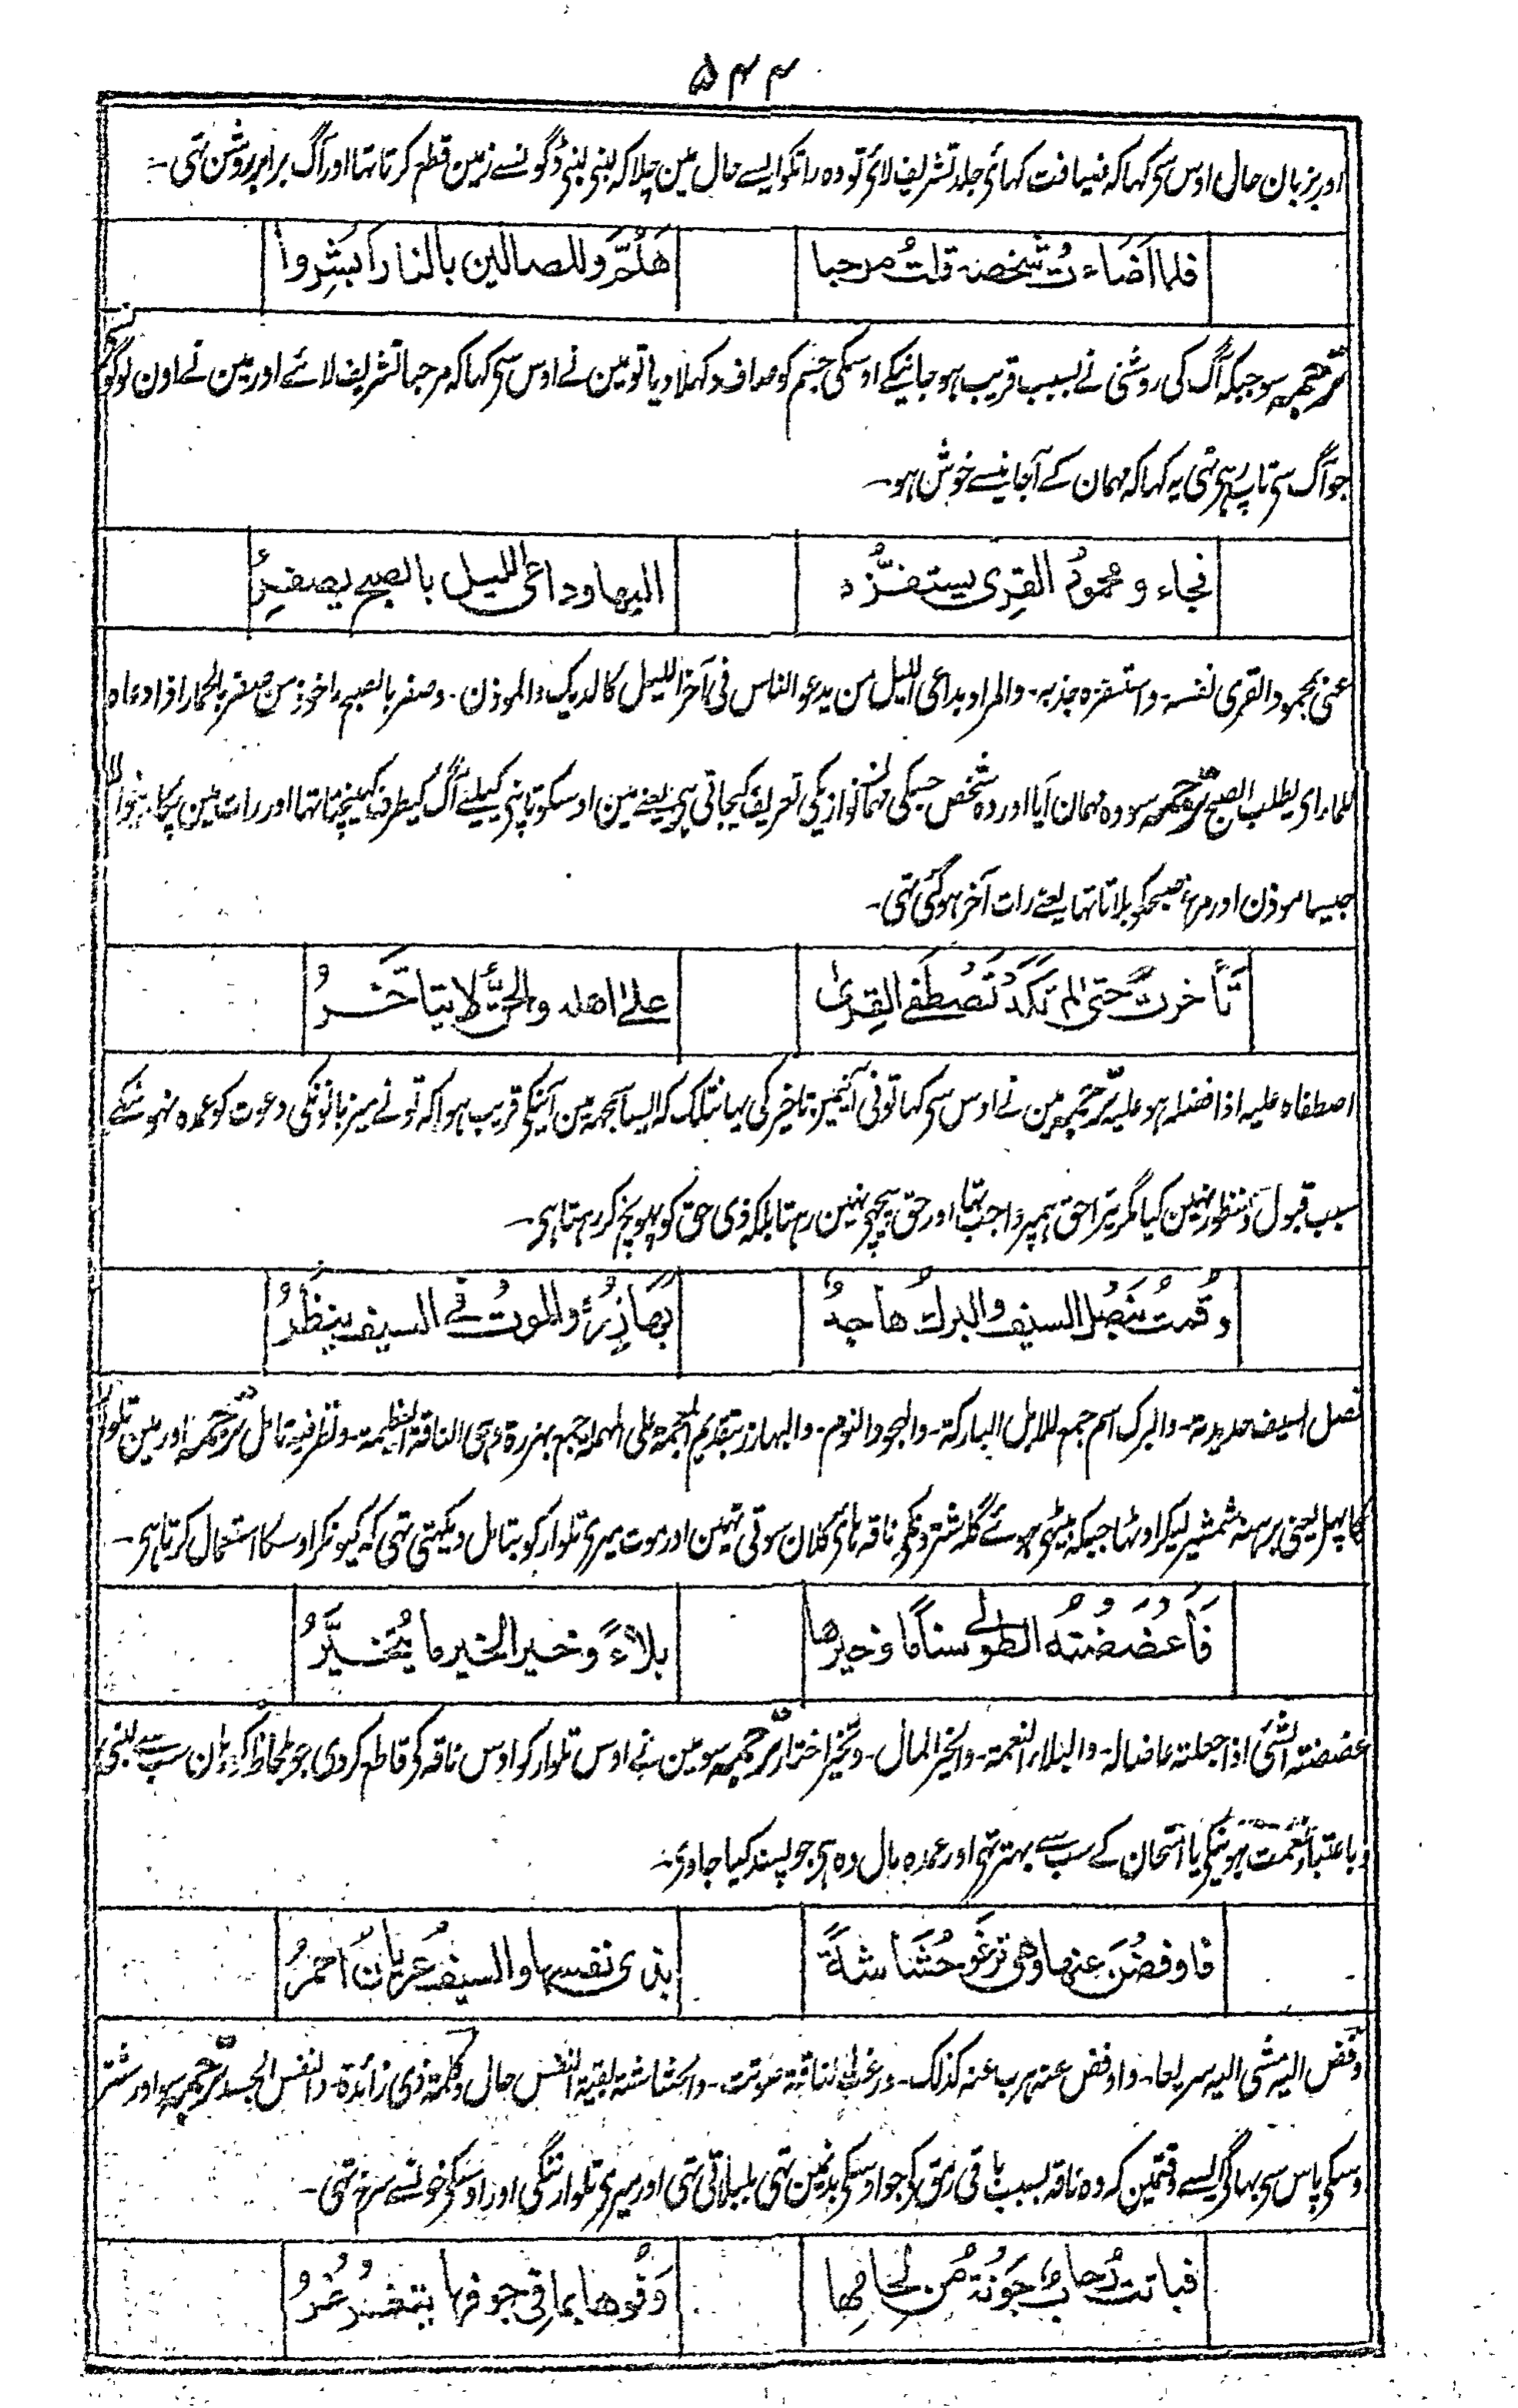 ۵۴۴
اور بزبان حال اوس سی کہا کہ ضیافت کہائی جلد تشریف لائی تو وہ راتکو ایسے حال مین چلا کہ لنبی لنبی ڈگونسے زمین قطع کرتا تہا اور آگ برابر روشن تہی۔
فلما اَضَاءَتْ شَخصَه قلتُ مرحبا هَلُمَّ وللصالین بالنار اَبشِروا
ترجمہ سو جبکہ آگ کی روشنی نے بسبب قریب ہو جانیکے اوسکی جسم کو صاف دکہلا دیا تو مین نے اوس سی کہا کہ مرحبا تشریف لائے اور مین نے اون لوگونسے
جو آگ سی تاپ رہی تہی یہ کہا کہ مہمان کے آجانیسے خوش ہو۔
فجاء و محمودُ القِرٰی یستفزُّه الیها وداعی اللیل بالصبح یصفِرُ
عنی بمحمود القری نفسه۔ واستفزه جذبہ۔ والمراد بداعی اللیل من یدعو الناس فی آخر اللیل کالدیک والموذن۔ وصفر بالصبح ماخوذ من صفر بالحمار اذا دعاه
للماء ای یطلب الصبح ترجمہ سو وہ مہمان آیا اور وہ شخص جسکی مہمانوازیکی تعریف کیجاتی ہی یعنے مین اوسکو تاپنی کیلیے آگ کیطرف کہینچتا تہا اور رات مین پکارنیوالا
جیسا موذن اور مرغ صبحکو بلاتا تہا یعنے رات آخر ہو گئی تہی۔
تَأَخرتَ حتی لم تَکَدْ تَصْطَفی القِرٰی علی اهله والحقُّ لا یتأخَّرُ
اصطفاه علیہ اذا فضلہ ہو علیہ ترجمہ مین نے اوس سی کہا تونی آنیمین تاخیر کی یہانتلک کہ ایسا سمجہہ مین آنیکی قریب ہوا کہ تو نے میزبانونکی دعوت کو عمدہ نہونیکے
سبب قبول و منظور نہین کیا مگر تیرا حق ہمپر واجب تہا اور حق پیچہی نہین رہتا بلکہ ذی حق کو پہونچ کر رہتا ہی۔
وقمتُ بنَصْلِ السیف والبرکُ هاجدٌ بَهَازِرُهُ والموتُ فی السیف ینظُرُ
نصل السیف حدیدتہ۔ والبرک اسم جمع للابل البارکة۔ والہجود النوم۔ والبہازر بتقدیم المعجمة علی المہملة جمع بہزرة وہی الناقة العظیمة۔ ونظر فیہ تامل ترجمہ اور مین تلوار
کا پہل یعنی برہنہ شمشیر لیکر اوٹہا جبکہ بیٹہی ہوئے گلہ شترونکی ناقہ ہائی کلان سوتی تہین اور موت میری تلوار کو بتامل دیکہتی تہی کہ کیونکر اوسکا استعمال کرتا ہی۔
فَأَعْضَضتُهُ الطولٰی سنامًا وخیرها بلاءً وخیر الخیر ما یُتَخیَّرُ
اعضضتہ الشئی اذا جعلتہ عاضالہ۔ والبلاء النعمة۔ والخیر المال۔ وتخیر اختار ترجمہ سو مین نے اوس تلوار کو اوس ناقہ کی قاطع کر دی جو بلحاظ کوہان سب سے لنبی
وباعتبار نعمت ہونیکی یا امتحان کے سب سے بہتر تہی اور عمدہ مال وہ ہی جو پسند کیا جاوی۔
فاوفضْنَ عنها وهی ترغو حُشاشةً بذی نفسها والسیفُ عریانُ احمرُ
وفض الیہ مشی الیہ سریعا۔ واوفض عنہ ہرب عنہ کذلک۔ ورغت الناقة صوتت۔ والحشاشة بقیة النفس حال وکلمة ذی زائدة۔ والنفس الجسد ترجمہ سو اور شتر
اوسکی پاس سی بہاگی ایسے وقتمین کہ وہ ناقہ بسبب باقی رمق کی جو اوسکی بدنمین تہی بلبلاتی تہی اور میری تلوار ننگی اور اوسکی خونسے سرخ تہی۔
فباتت رُحابٌ جَونةٌ من لِحامِها وفُوها بما فی جوفها یتغرغرُ